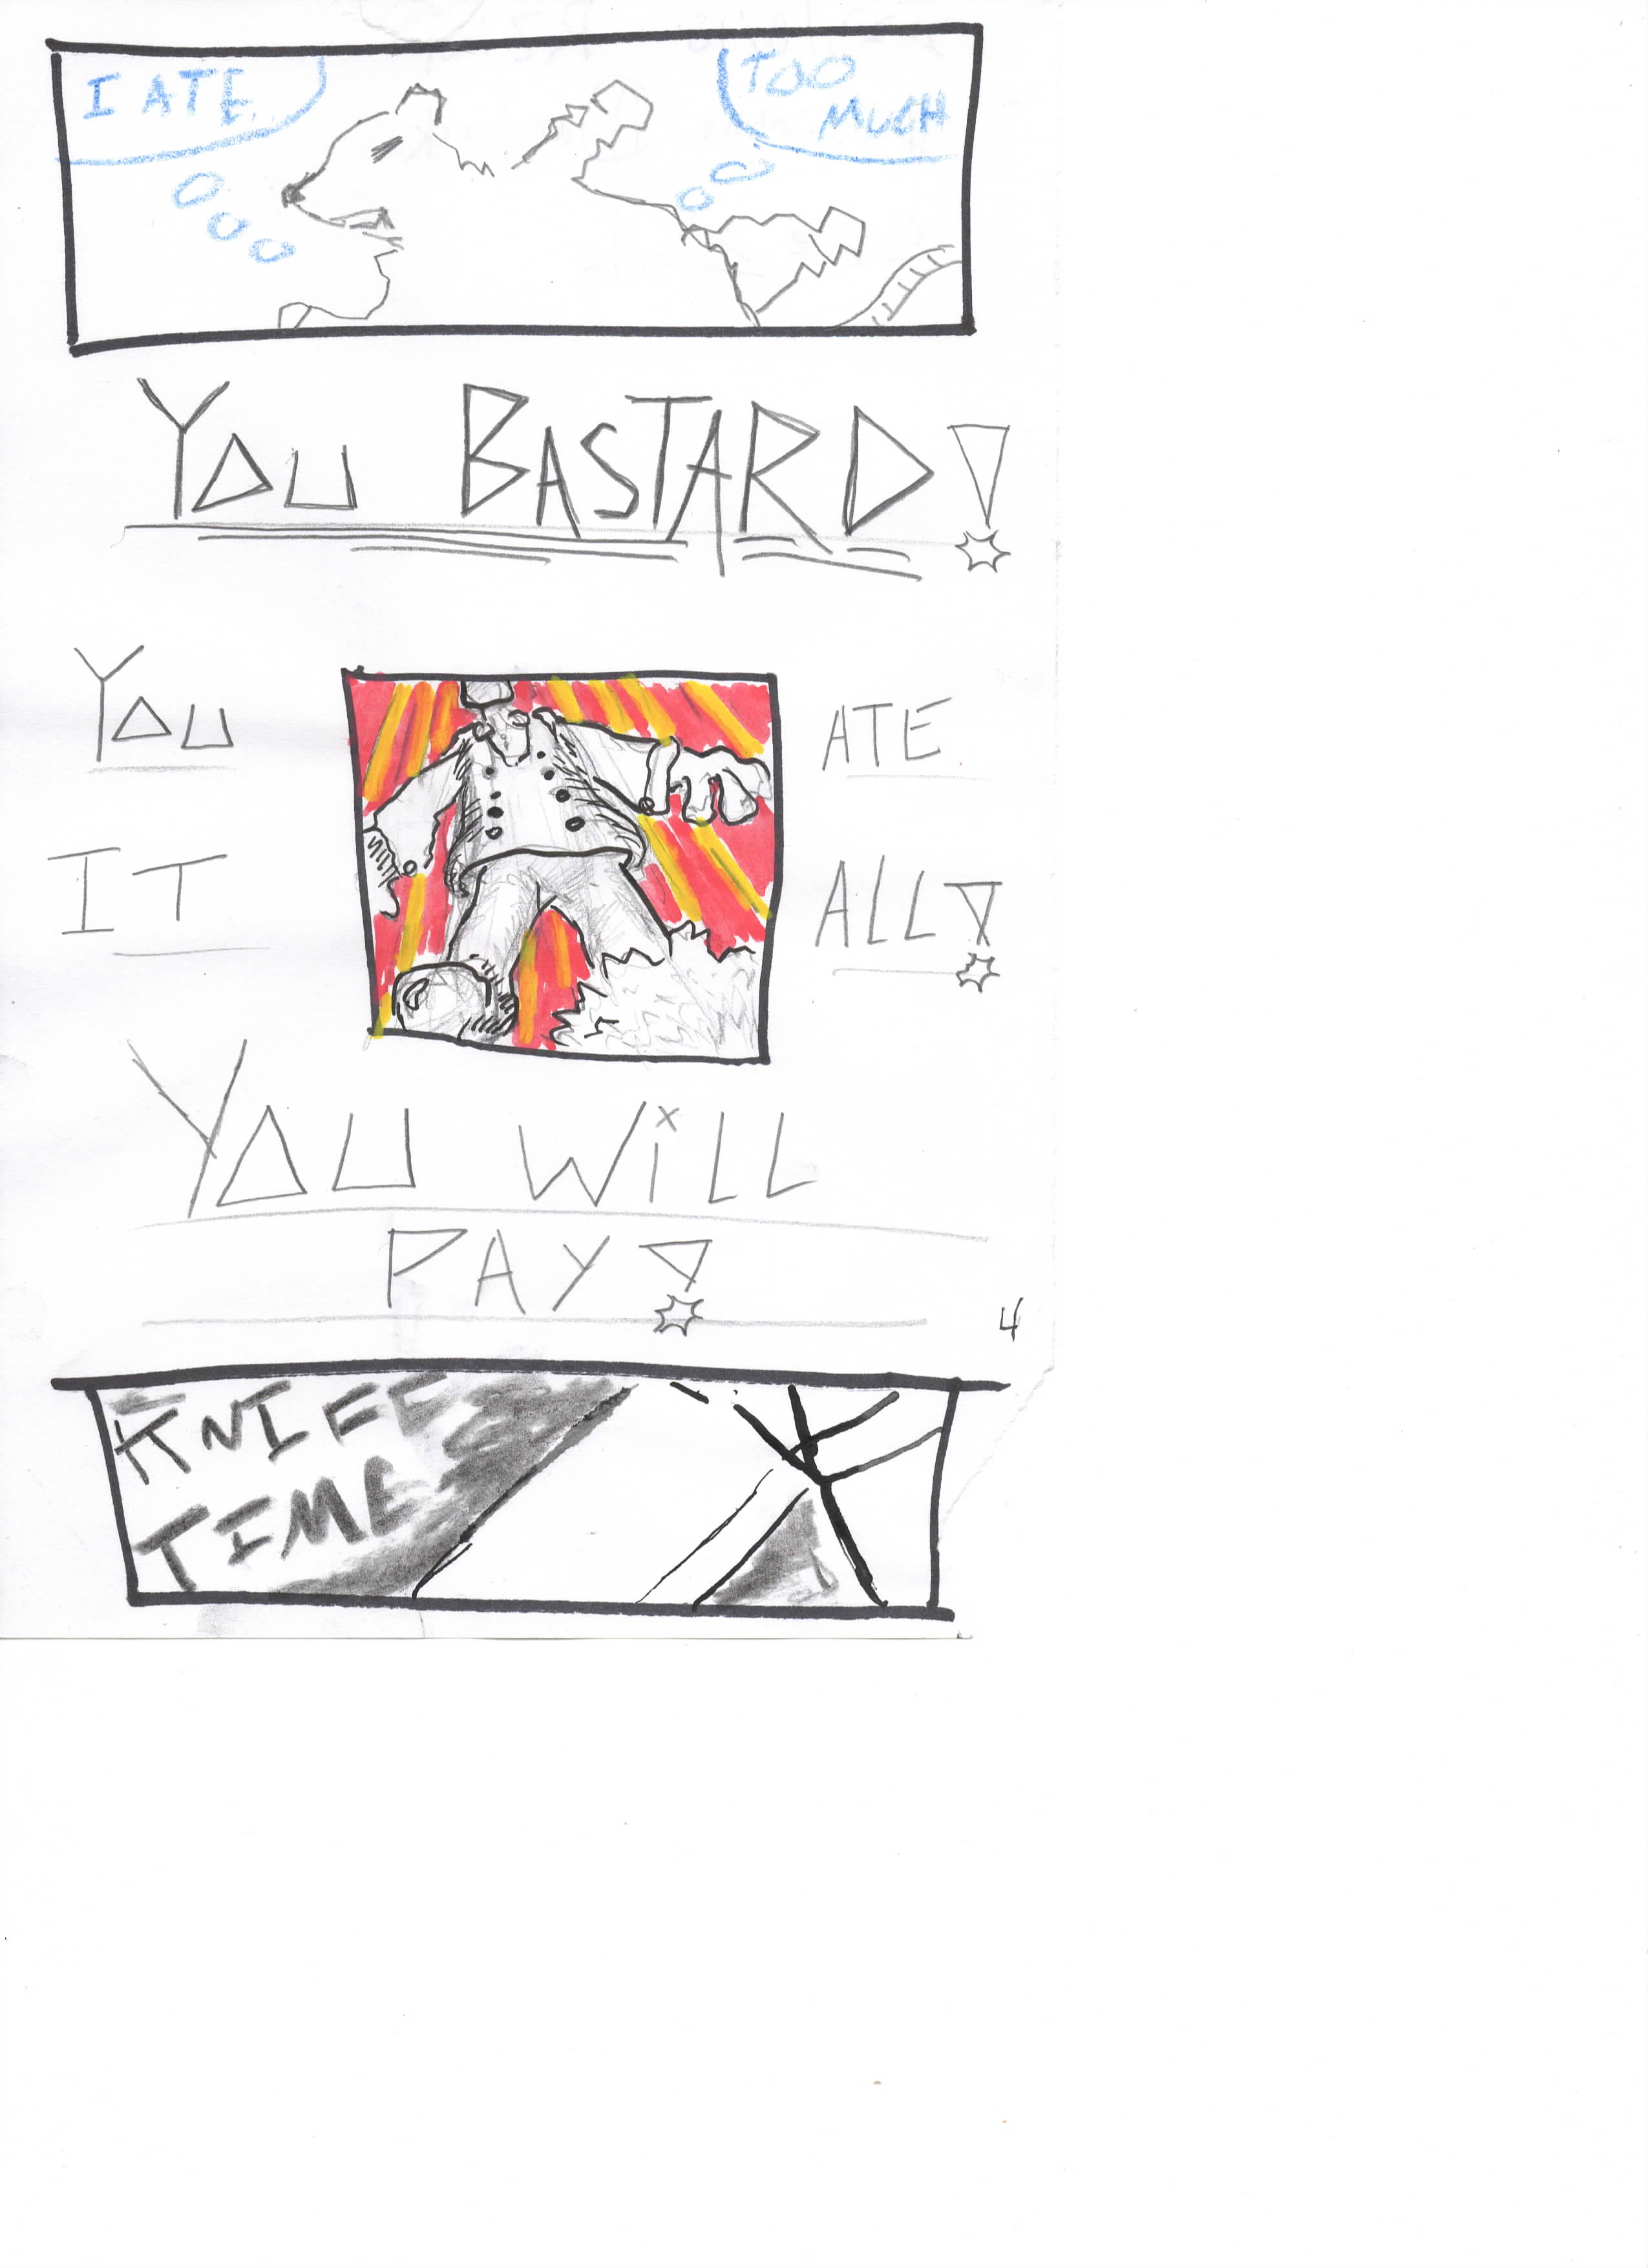 I ATE
TOO
MUCH
YOU BASTARD!
YOU ATE
IT ALL!
YOU WiLL
PAY!
4
KNIFE
TIME